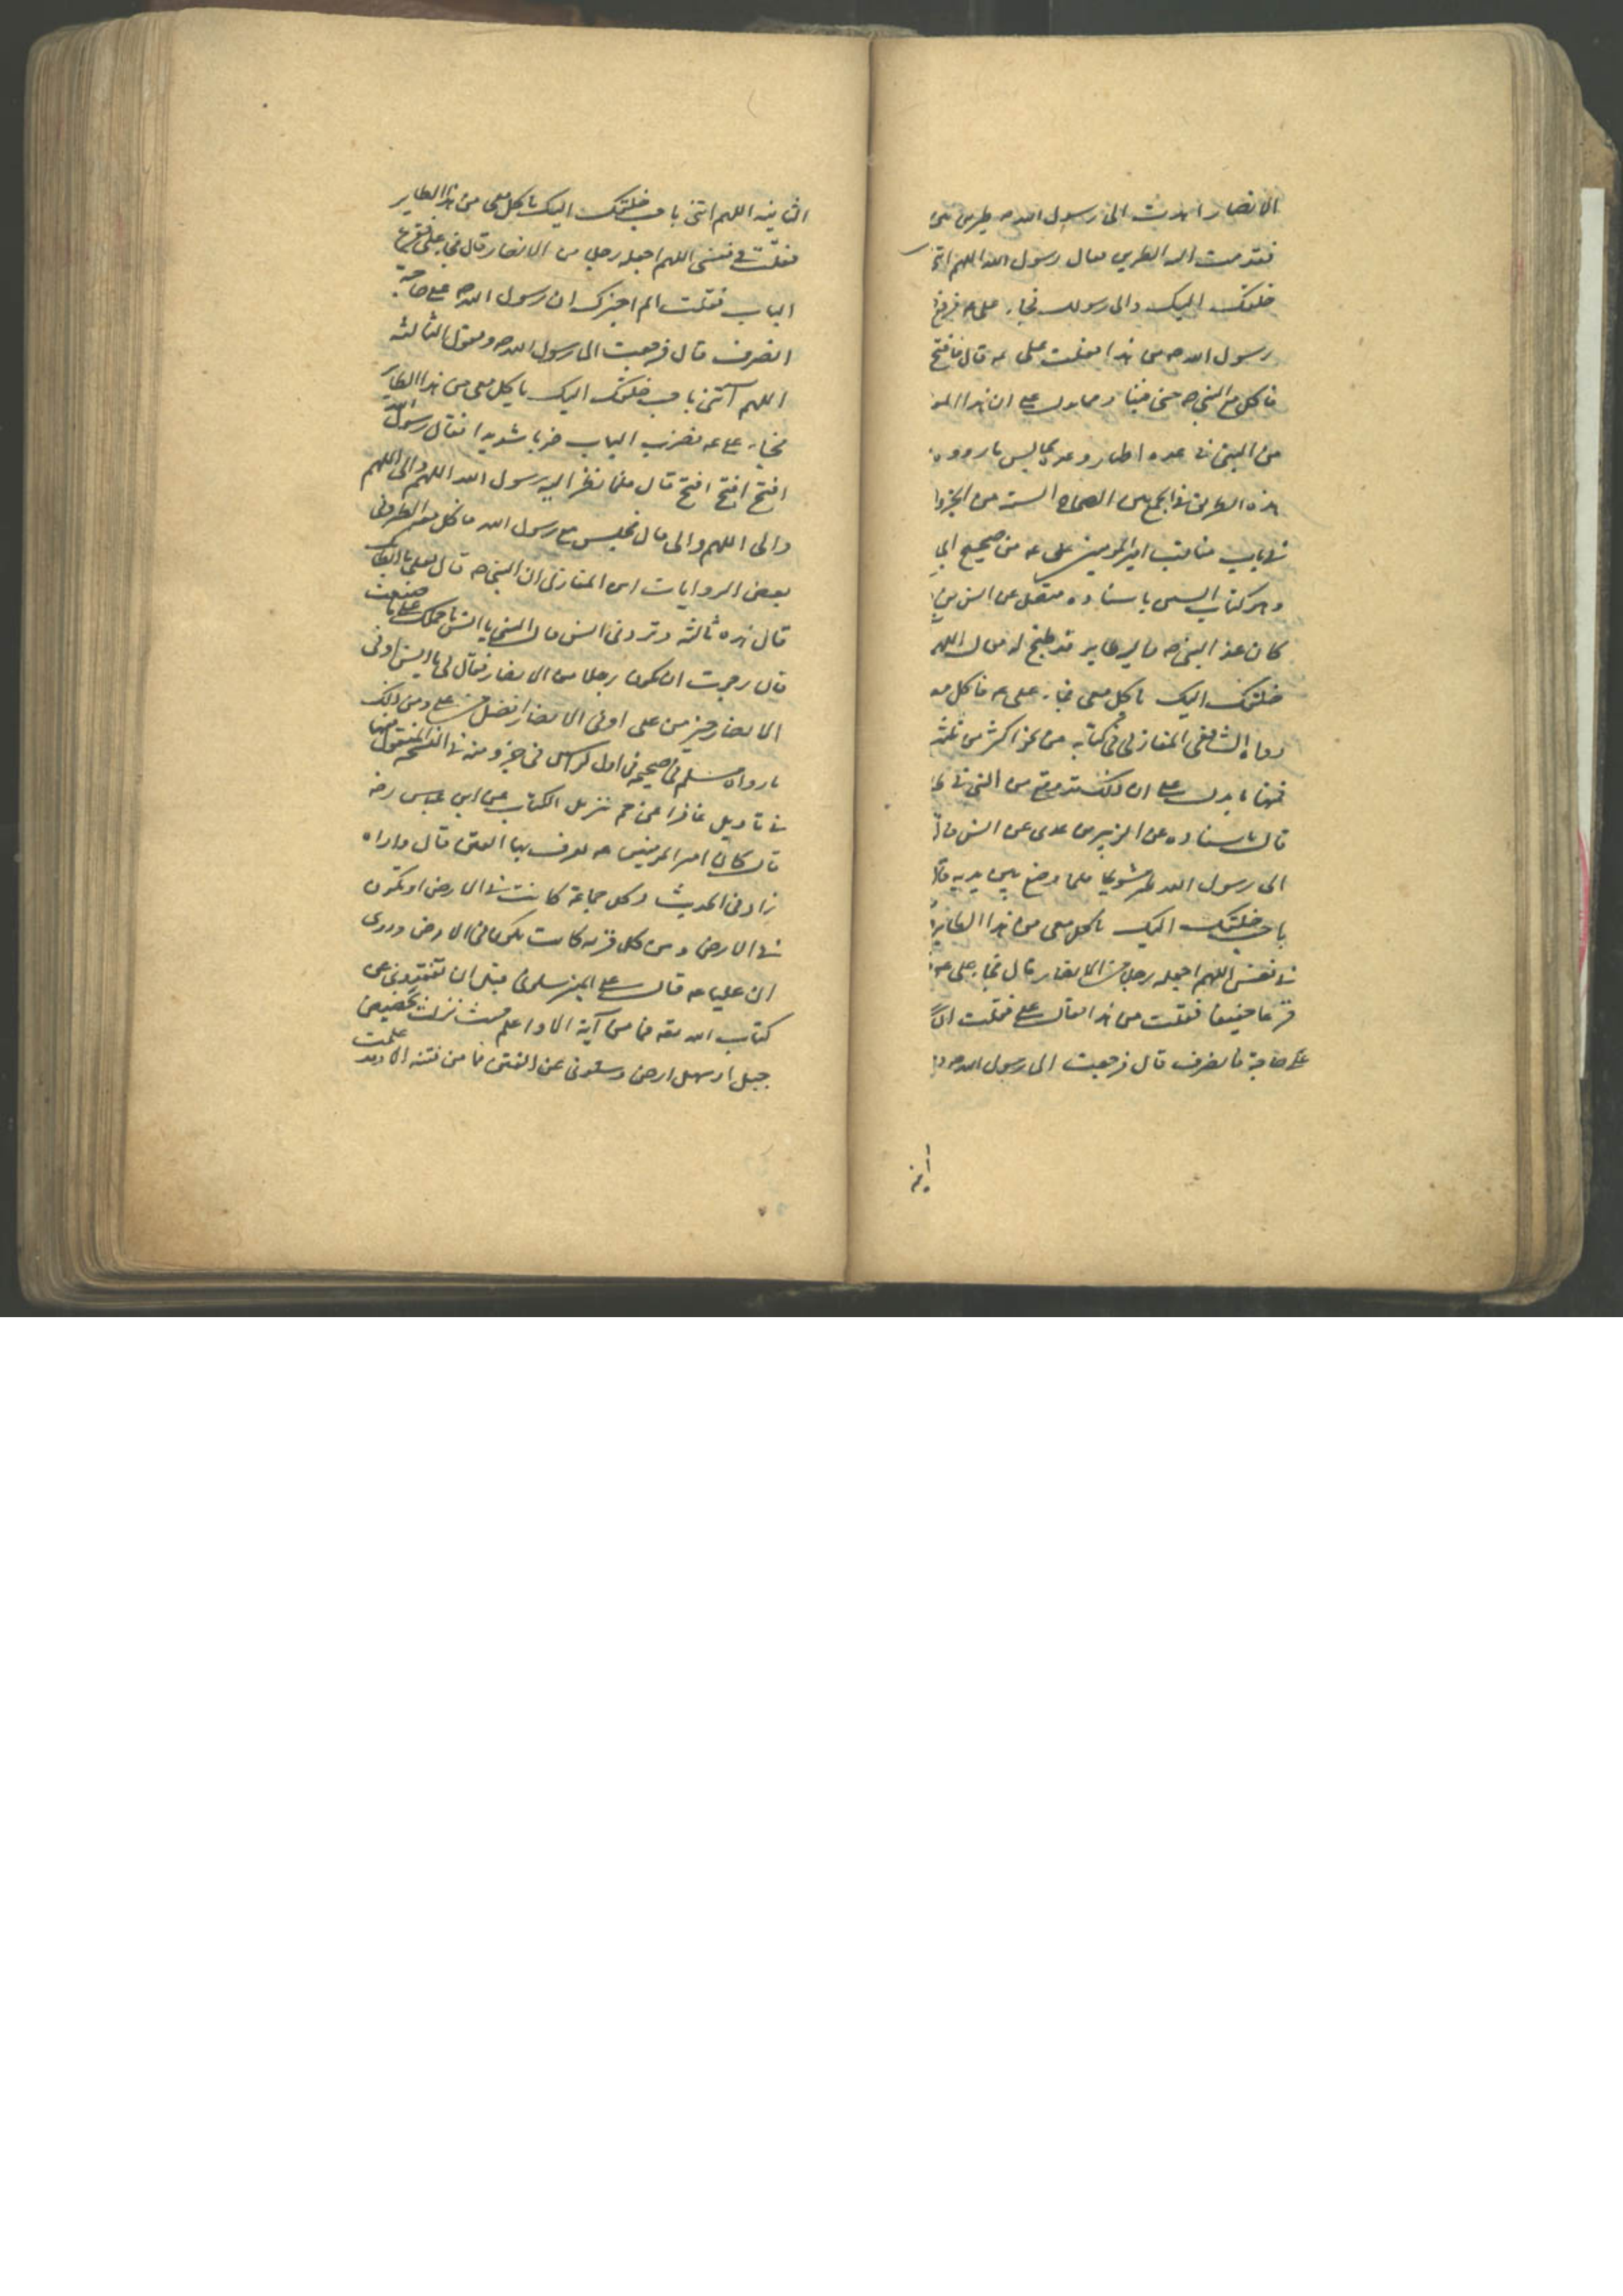 الانصار اهدت الى رسول الله ص طيرين بين
فقدمت اليه الطيرين فقال رسول الله اللهم ائتنى
خلقك اليك والى رسولك فجاء على ع فرفع
رسول الله ص من هذا فقلت على ع قال فافتح
فاكل مع النبى ص حتى فنيا ومما يدل على ان هذا
من النبى فى عدة اطيار وعدة مجالس ما رووه
هذه الطريق فى الجمع بين الصحاح الستة من الجزء
فى باب مناقب امير المومنين على ع من صحيح ابى
وهو كتاب السنن باسناده متصل عن انس بن
كان عند النبى ص طاير قد طبخ له فقال اللهم
خلقك اليك ياكل معى فجاء على ع فاكل معه
رواه الشافعى المغازلى فى كتابه من نحو اكثر من ثلثين
فمنها ما يدل على ان ذلك قد وقع من النبى فى
قال باسناده عن الزبير بن عدى عن انس قال
الى رسول الله طير مشوى فلما وضع بين يديه قال
باحب خلقك اليك ياكل معى من هذا الطاير
فى نفسى اللهم اجعله رجلا من الانصار قال فجاء على ع
قرعا خفيفا فقلت من هذا فقال على فقلت ان
على حاجة فانصرف قال فرجعت الى رسول الله ص
الثانيه اللهم ائتنى باحب خلقك اليك ياكل معى من هذا الطاير
فقلت فى نفسى اللهم اجعله رجلا من الانصار قال فجاء على فقرع
الباب فقلت الم اخبرك ان رسول الله ص على حاجة
انصرف قال فرجعت الى رسول الله ص وهو يقول الثالثه
اللهم آئتنى باحب خلقك اليك ياكل معى من هذا الطاير
فجاء على ع فضرب الباب ضربا شديدا فقال رسول الله
افتح افتح افتح قال فلما نظر اليه رسول الله اللهم والى اللهم
والى اللهم والى قال فجلس مع رسول الله فاكل معه الطير وفى
بعض الروايات ابن المغازلى ان النبى ص قال لعلى ما ابطاك
قال هذه ثالثه وتردنى انس قال النبى يا انس ما حملك على ما صنعت
قال رجوت ان يكون رجلا من الانصار فقال لى يا انس اوفى
الانصار خير من على اوفى الانصار افضل من على ومن ذلك
ما رواه مسلم فى صحيحه فى اول كراس فى جزو منه فى النسخه المنقول منها
فى تاويل غافر اعنى حم تنزيل الكتاب عن ابن عباس رض
قال كان امير المومنين ع يعرف بها الفتن قال واراه
زاد فى الحديث وكل جماعة كانت فى الارض او تكون
فى الارض ومن كل قريه كانت او تكون فى الارض وروى
ان عليا ع قال على المنبر سلونى قبل ان تفقدونى عن
كتاب الله تعه فما من آية الا واعلم حيث نزلت بحضيض
جبل او سهل ارض وسلونى عن الفتن فما من فتنه الا وقد علمت